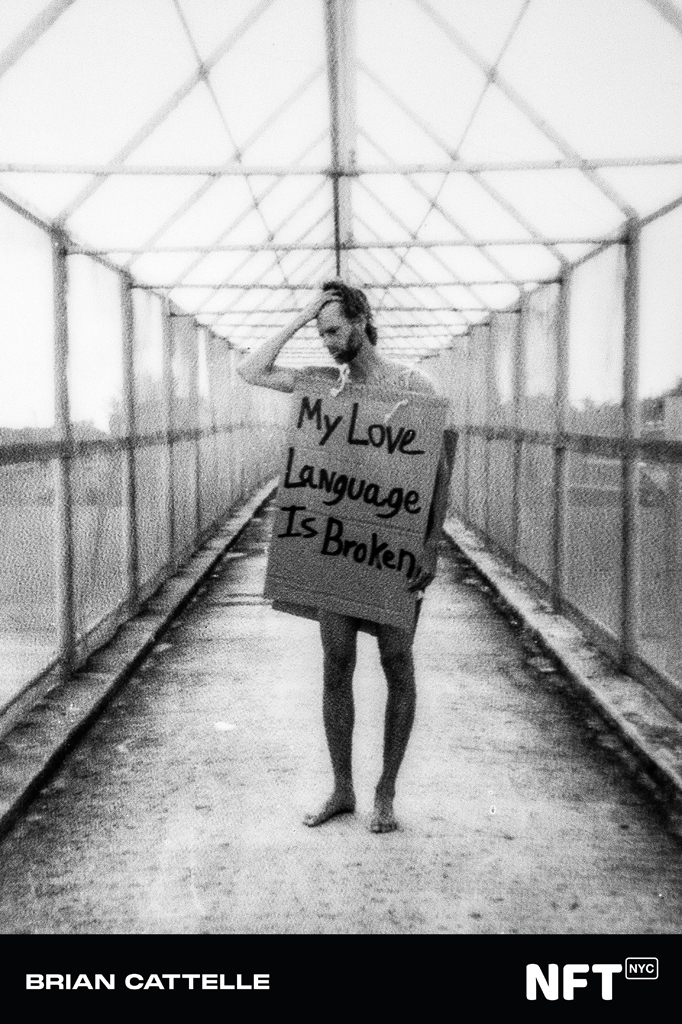 My Love
Language
Is Broken
BRIAN CATTELLE
NFT NYC